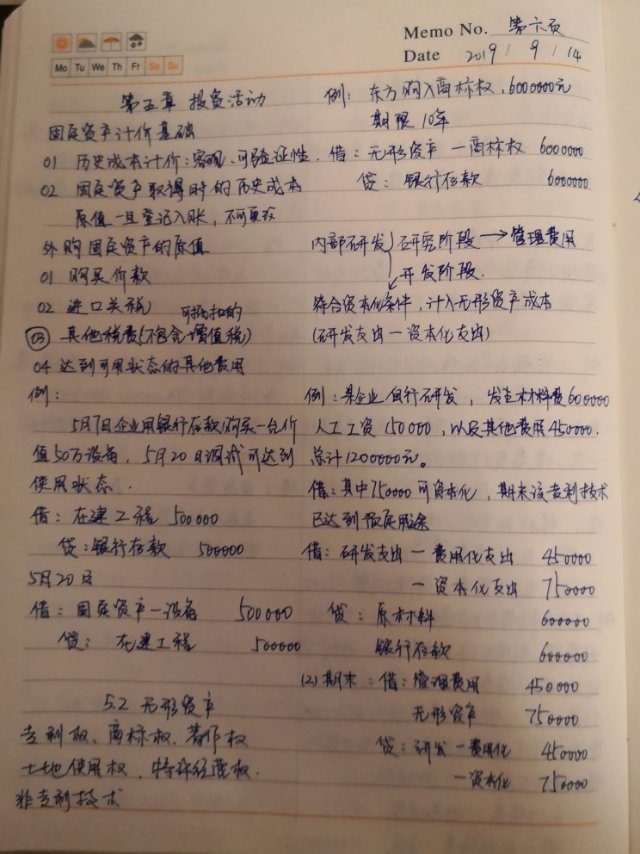 Memo No. 第六页
Mo Tu We Th Fr Sa Su
Date 2019 / 9 / 14
第五章 投资活动
固定资产计价基础
01 历史成本计价:客观、可验证性.
02 固定资产取得时的历史成本
原值一旦登记入账,不可更改
外购固定资产的原值
01 购买价款
02 进口关税
可抵扣的
03 其他税费(不包含增值税)
04 达到可用状态的其他费用
例:
5月7日企业用银行存款购买一台价
值50万设备,5月20日调试可达到
使用状态.
借:在建工程 500000
贷:银行存款 500000
5月20日
借:固定资产—设备 500000
贷:在建工程 500000
5.2 无形资产
专利权、商标权、著作权
土地使用权,特许经营权.
非专利技术
例:东方购入商标权,6000000元
期限10年
借:无形资产—商标权 6000000
贷:银行存款 6000000
内部研发 研究阶段→管理费用
开发阶段.
符合资本化条件,计入无形资产成本
(研发支出—资本化支出)
例:某企业自行研发,发生材料费600000
人工工资150000,以及其他费用450000.
总计1200000元。
借:其中750000可资本化,期末该专利技术
已达到预定用途
借:研发支出—费用化支出 450000
—资本化支出 750000
贷:原材料 600000
银行存款 600000
(2)期末:借:管理费用 450000
无形资产 750000
贷:研发—费用化 450000
—资本化 750000